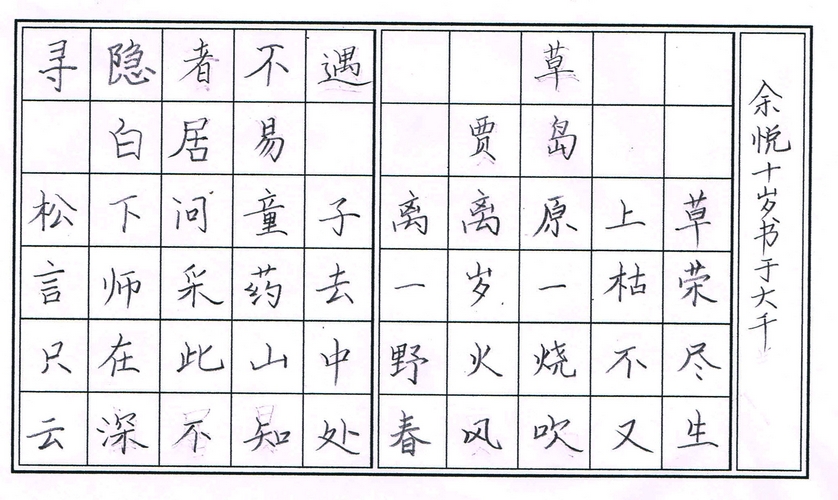 寻隐者不遇
白居易
松下问童子
言师采药去
只在此山中
云深不知处
草
贾岛
离离原上草
一岁一枯荣
野火烧不尽
春风吹又生
余悦十岁书于大千